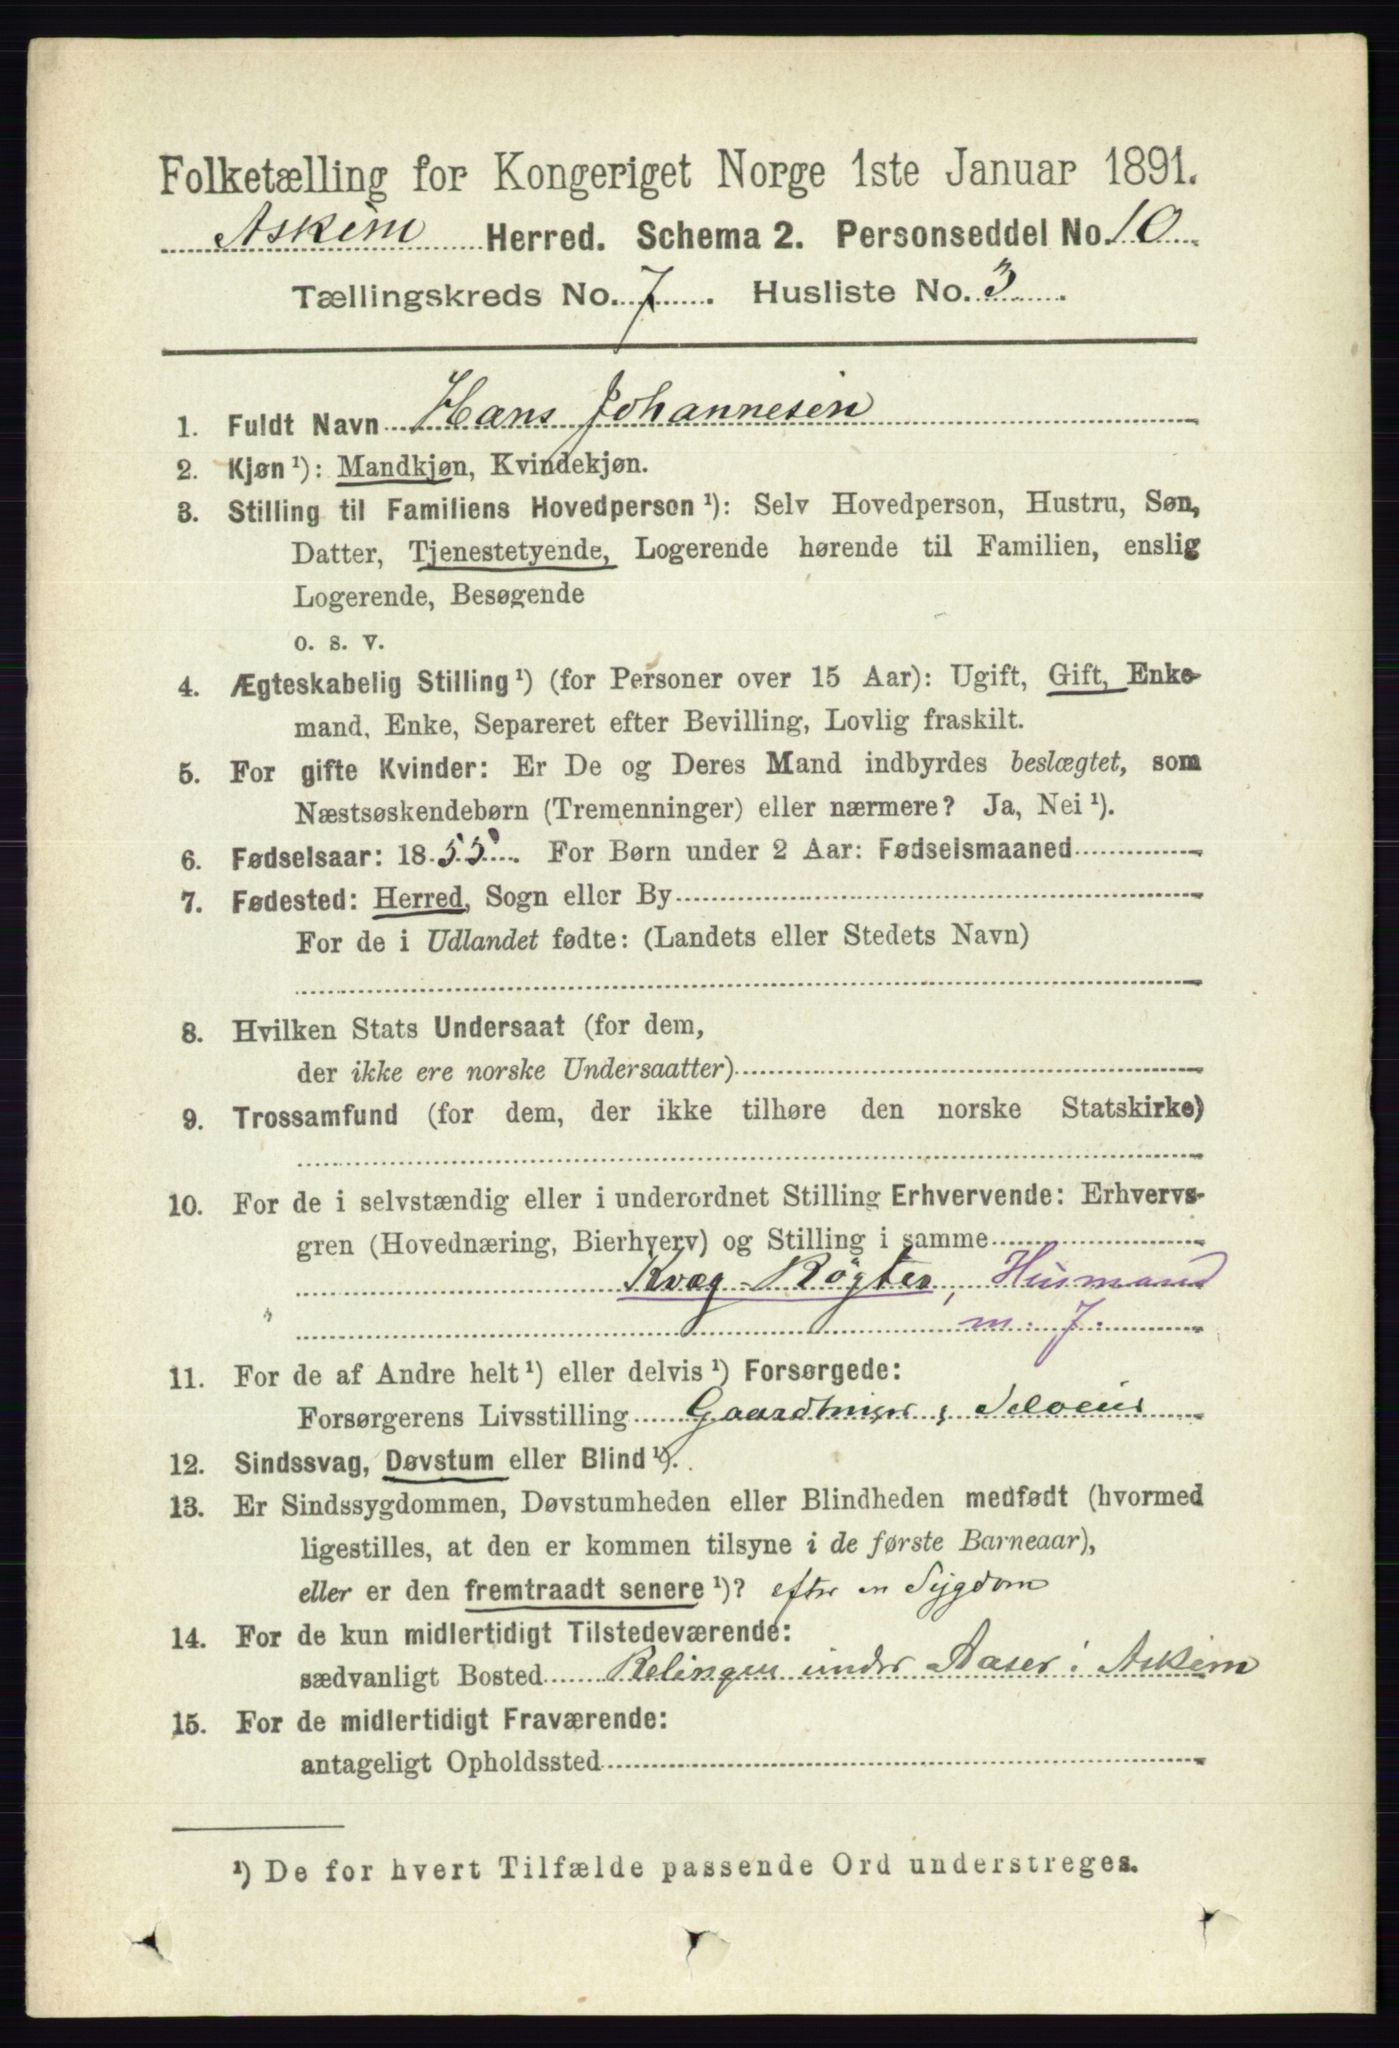 Folketælling for Kongeriget Norge 1ste Januar 1891.
Askim Herred. Schema 2. Personseddel No. 10
Tællingskreds No. 7. Husliste No. 3.
1. Fuldt Navn Hans Johannesen
2. Kjøn ¹): Mandkjøn, Kvindekjøn.
3. Stilling til Familiens Hovedperson ¹): Selv Hovedperson, Hustru, Søn,
Datter, Tjenestetyende, Logerende hørende til Familien, enslig
Logerende, Besøgende
o. s. v.
4. Ægteskabelig Stilling ¹) (for Personer over 15 Aar): Ugift, Gift, Enke-
mand, Enke, Separeret efter Bevilling, Lovlig fraskilt.
5. For gifte Kvinder: Er De og Deres Mand indbyrdes beslægtet, som
Næstsøskendebørn (Tremenninger) eller nærmere? Ja, Nei ¹).
6. Fødselsaar: 1855. For Børn under 2 Aar: Fødselsmaaned
7. Fødested: Herred, Sogn eller By
For de i Udlandet fødte: (Landets eller Stedets Navn)
8. Hvilken Stats Undersaat (for dem,
der ikke ere norske Undersaatter)
9. Trossamfund (for dem, der ikke tilhøre den norske Statskirke)
10. For de i selvstændig eller i underordnet Stilling Erhvervende: Erhvervs-
gren (Hovednæring, Bierhverv) og Stilling i samme
Kvæg-Røgter, Husmand
m. J.
11. For de af Andre helt ¹) eller delvis ¹) Forsørgede:
Forsørgerens Livsstilling
12. Sindssvag, Døvstum eller Blind ¹).
13. Er Sindssygdommen, Døvstumheden eller Blindheden medfødt (hvormed
ligestilles, at den er kommen tilsyne i de første Barneaar),
eller er den fremtraadt senere ¹)? efter en Sygdom
14. For de kun midlertidigt Tilstedeværende:
sædvanligt Bosted under Aaser i Askim
15. For de midlertidigt Fraværende:
antageligt Opholdssted
¹) De for hvert Tilfælde passende Ord understreges.